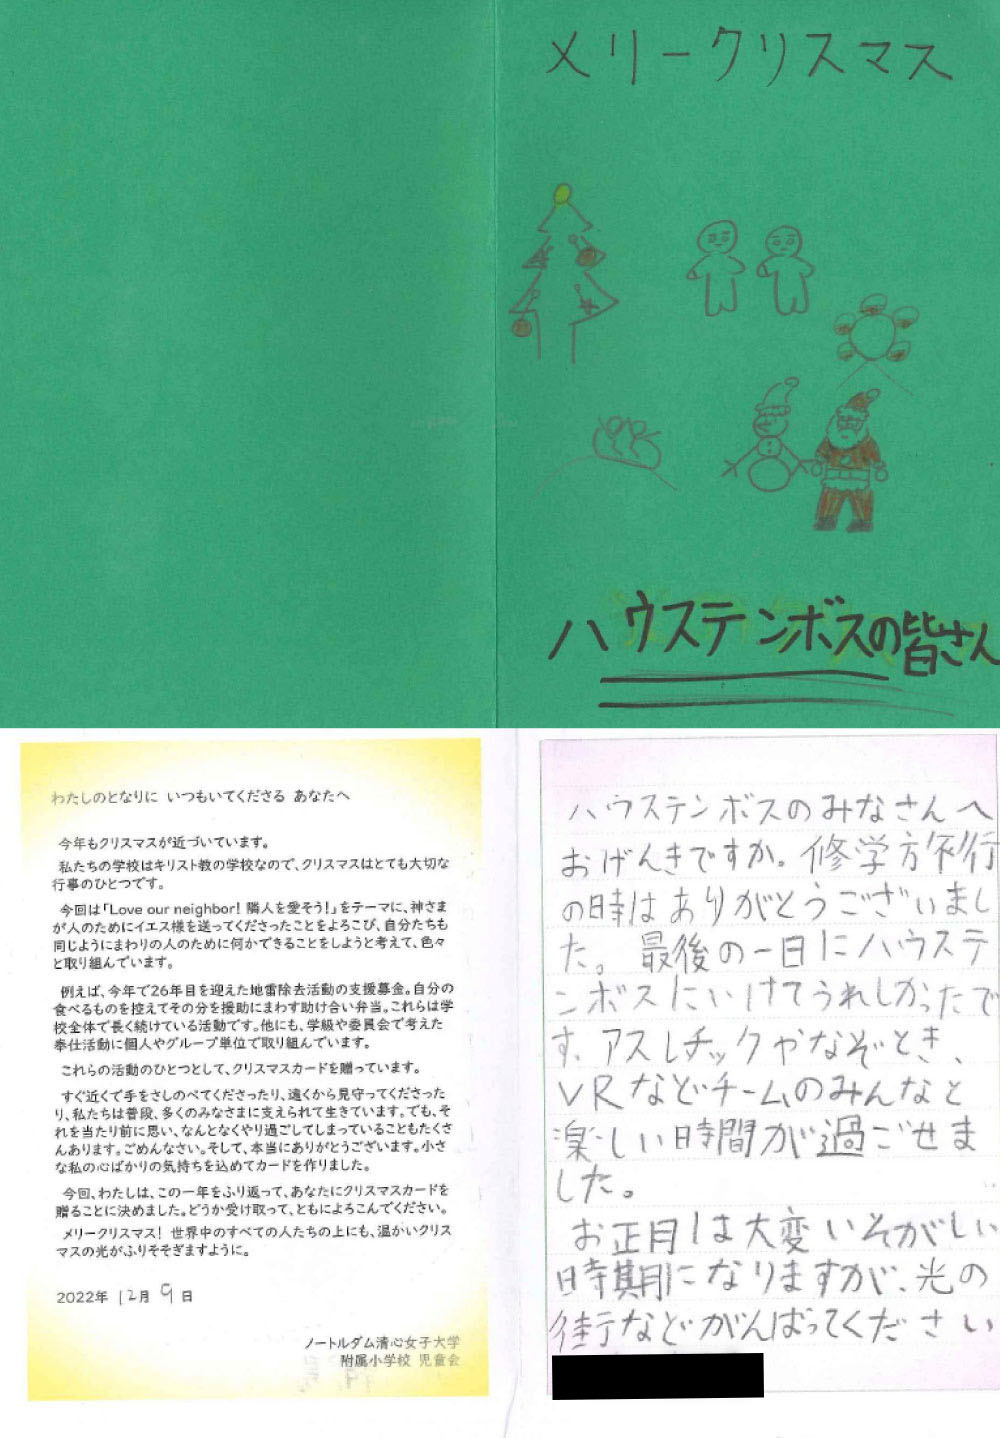 メリークリスマス
ハウステンボスの皆さん
わたしのとなりに いつもいてくださる あなたへ
今年もクリスマスが近づいています。
私たちの学校はキリスト教の学校なので、クリスマスはとても大切な
行事のひとつです。
今回は「Love our neighbor! 隣人を愛そう!」をテーマに、神さま
が人のためにイエス様を送ってくださったことをよろこび、自分たちも
同じようにまわりの人のために何かできることをしようと考えて、色々
と取り組んでいます。
例えば、今年で26年目を迎えた地雷除去活動の支援募金。自分の
食べるものを控えてその分を援助にまわす助け合い弁当。これらは学
校全体で長く続けている活動です。他にも、学級や委員会で考えた
奉仕活動に個人やグループ単位で取り組んでいます。
これらの活動のひとつとして、クリスマスカードを贈っています。
すぐ近くで手をさしのべてくださったり、遠くから見守ってくださった
り、私たちは普段、多くのみなさまに支えられて生きています。でも、そ
れを当たり前に思い、なんとなくやり過ごしてしまっていることもたくさ
んあります。ごめんなさい。そして、本当にありがとうございます。小さ
な私の心ばかりの気持ちを込めてカードを作りました。
今回、わたしは、この一年をふり返って、あなたにクリスマスカードを
贈ることに決めました。どうか受け取って、ともによろこんでください。
メリークリスマス! 世界中のすべての人たちの上にも、温かいクリス
マスの光がふりそそぎますように。
2022年 12月 9日
ノートルダム清心女子大学
附属小学校 児童会
ハウステンボスのみなさんへ
おげんきですか。修学旅行
の時はありがとうございまし
た。最後の一日にハウステ
ンボスにいけてうれしかったで
す。アスレチックやなぞとき、
VRなどチームのみんなと
楽しい時間が過ごせま
した。
お正月は大変いそがしい
時期になりますが、光の
街などがんばってください